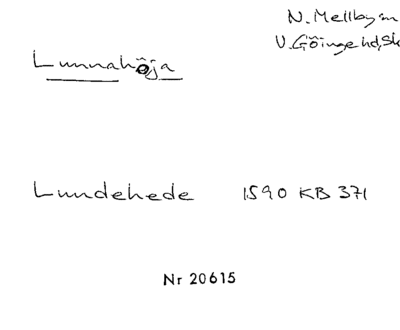 N. Mellbyan
V. Göingehd, Sk
Lunnahöja
Lundehede 1590 KB 371
Nr 20615